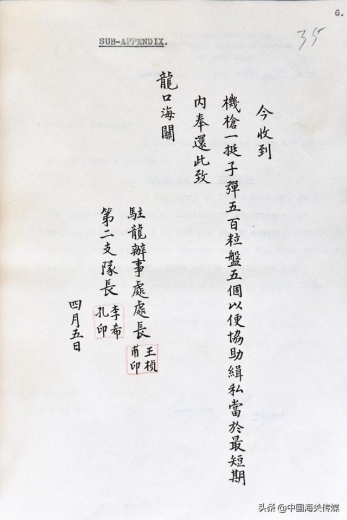 6.
35
SUB-APPENDIX.
今收到
機槍一挺子彈五百粒盤五個以便協助緝私當於最短期
內奉還此致
龍口海關
駐龍辦事處處長
王楨甫印
第二支隊長
李希孔印
四月五日
头条 @中国海关传媒